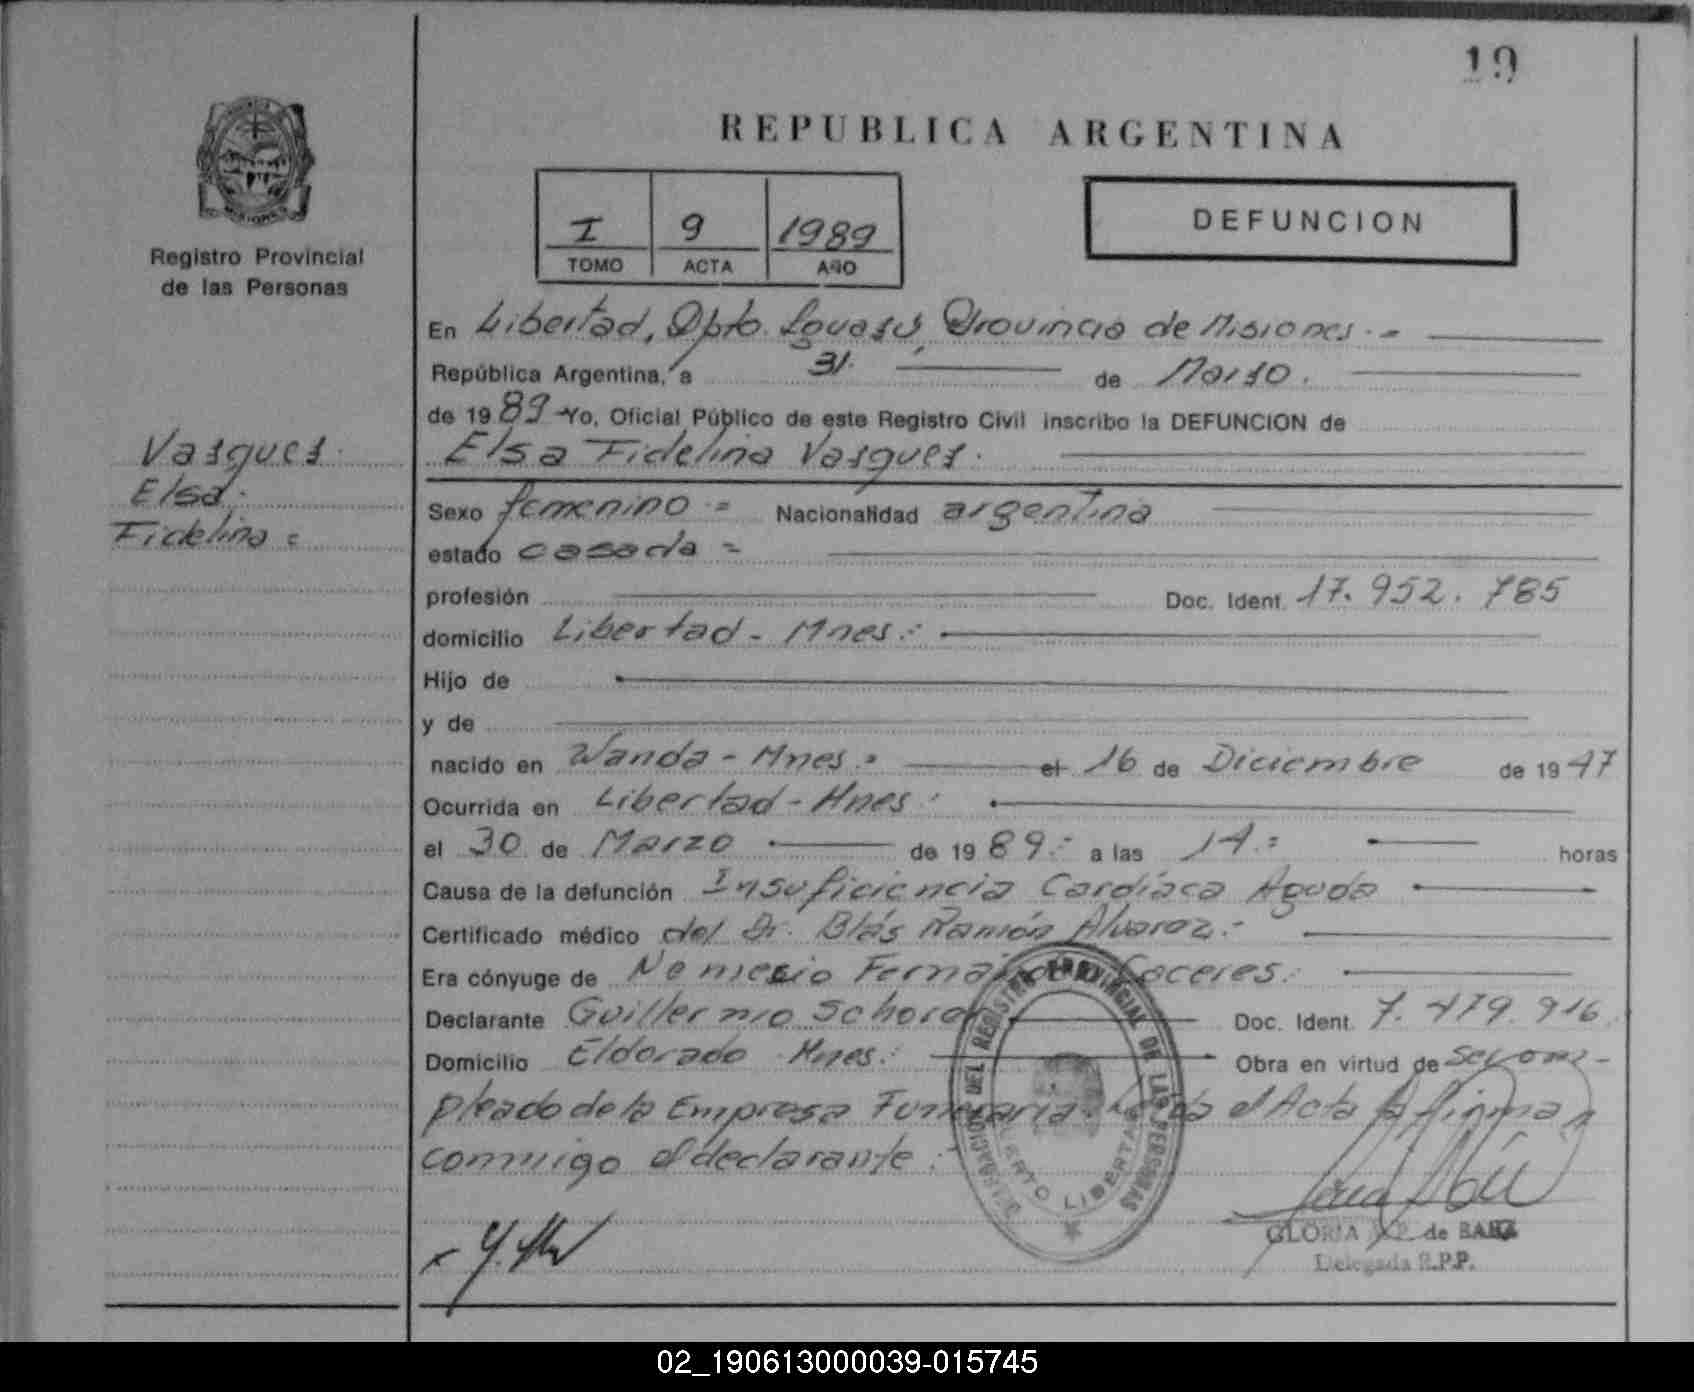 19
REPUBLICA ARGENTINA
Registro Provincial
de las Personas
I 9 1989
TOMO ACTA AÑO
DEFUNCION
En Libertad, Dpto. Iguasú, Provincia de Misiones.-
República Argentina, a 31. de Marzo.
de 1989 Yo, Oficial Público de este Registro Civil inscribo la DEFUNCION de
Elsa Fidelina Vasques.
Vasques.
Elsa.
Fidelina =
Sexo femenino = Nacionalidad argentina
estado casada =
profesión Doc. Ident. 17.952.785
domicilio Libertad - Mnes.:
Hijo de
y de
nacido en Wanda - Mnes. el 16 de Diciembre de 1947
Ocurrida en Libertad - Mnes.
el 30 de Marzo de 1989.- a las 14.= horas
Causa de la defunción Insuficiencia Cardíaca Aguda
Certificado médico del Dr. Blás Ramón Alvarez.-
Era cónyuge de Nemesio Caceres.
Declarante Guillermo Doc. Ident. 7.479.916
Domicilio Eldorado Mnes.: Obra en virtud de ser em-
pleado de la Empresa Funeraria. el Acta la firma
conmigo el declarante.
DEL REGISTRO PROVINCIAL DE LAS PERSONAS
PUERTO LIBERTAD
GLORIA de
Delegada R.P.P.
02_190613000039-015745